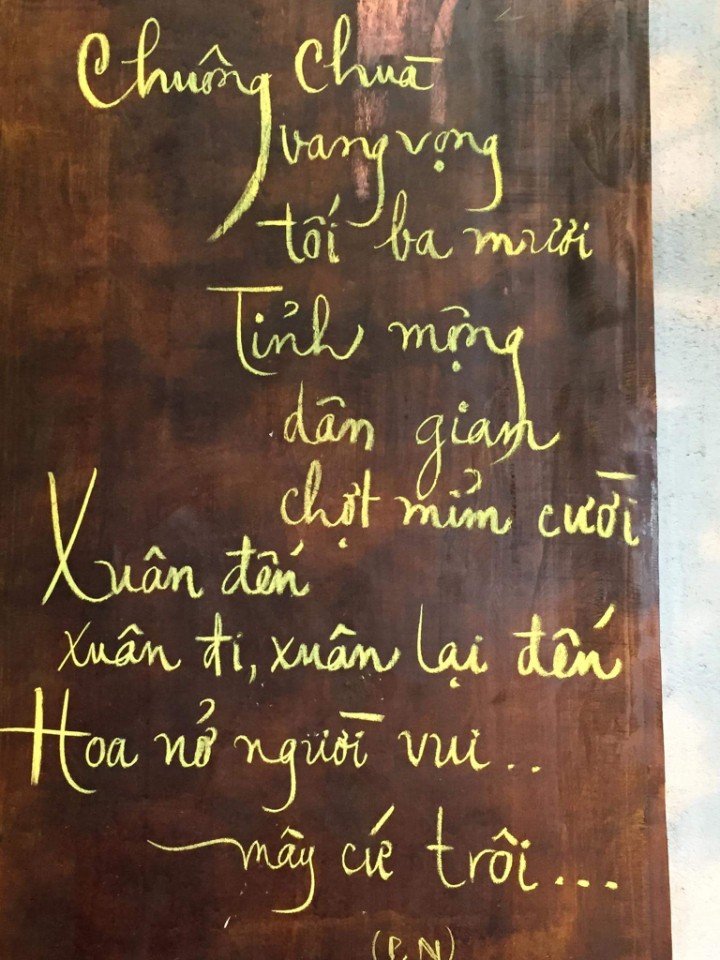 Chuông Chuà
vang vọng
tối ba mươi
Tỉnh mộng
dân giam
chợt mỉm cười
Xuân đến
xuân đi, xuân lại đến
Hoa nở người vui..
mây cứ trôi...
(P.N)